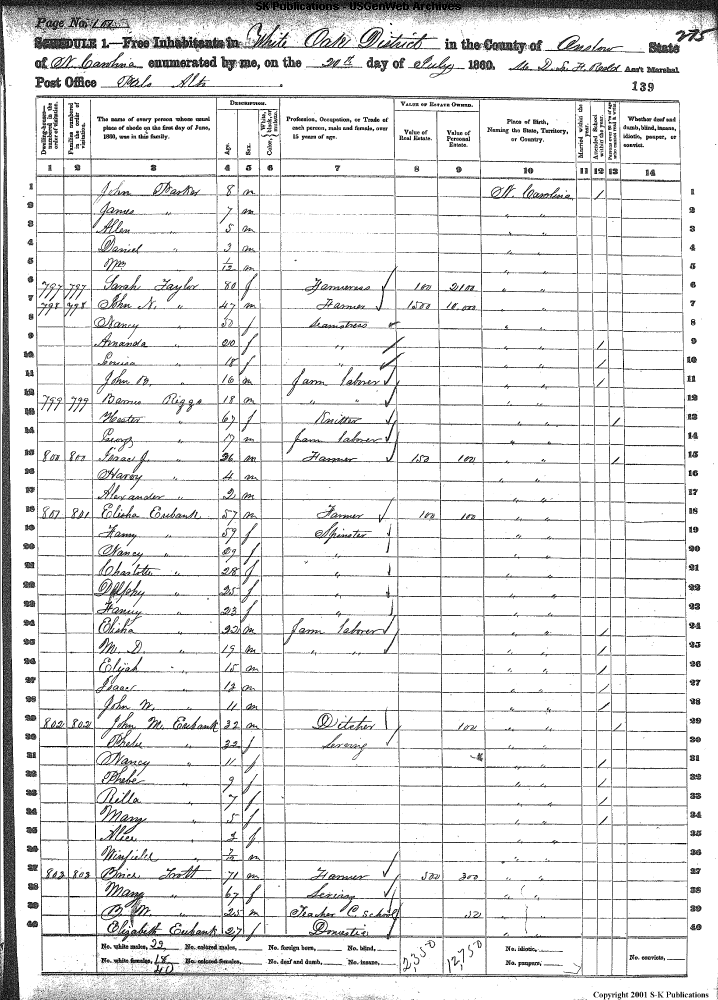 SK Publications - USGenWeb Archives
Page No. 101
SCHEDULE 1.—Free Inhabitants in White Oak District in the County of Onslow State
of N. Carolina enumerated by me, on the 20th day of July 1860. Ass't Marshal
Post Office Palo Alto
275
139
Dwelling-houses—numbered in the order of visitation.
Families numbered in the order of visitation.
The name of every person whose usual place of abode on the first day of June, 1860, was in this family.
DESCRIPTION.
Age.
Sex.
Color,
Profession, Occupation, or Trade of each person, male and female, over 15 years of age.
VALUE OF ESTATE OWNED.
Value of Real Estate.
Value of Personal Estate.
Place of Birth, Naming the State, Territory, or Country.
Married within the year.
Attended School within the year.
Whether deaf and dumb, blind, insane, idiotic, pauper, or convict.
1 2 3 4 5 6 7 8 9 10 11 12 13 14
1 John Barker 8 m N. Carolina / 1
2 James " 7 m " " 2
3 Allen 5 m " " 3
4 Daniel " 3 m " " 4
5 Wm 1/12 m " " 5
6 797 797 Sarah Taylor 80 f Farmeress 100 2100 " " 6
7 798 798 John N. " 47 m Farmer 1500 10,000 " " 7
8 Nancy " 50 f Seamstress " " 8
9 Amanda " 20 f " " " / 9
10 Louisa " 18 f " " " / 10
11 John B. " 16 m farm laborer " " / 11
12 799 799 Barnes Riggs 18 m " " " " 12
13 Hester " 67 f Knitter " " / 13
14 George " 17 m farm laborer " " 14
15 800 800 Isaac J. " 36 m Farmer 150 100 " " / 15
16 Harvy " 4 m " " 16
17 Alexander " 2 m " " 17
18 801 801 Elisha Eubank 57 m Farmer 100 100 " " 18
19 Fanny " 59 f Spinster " " 19
20 Nancy " 29 f " " " 20
21 Charlotte " 28 f " " " 21
22 Delphy " 25 f " " " 22
23 Fanny " 23 f " " " 23
24 Elisha " 22 m farm laborer " " / 24
25 M. D. " 19 m " " " " / 25
26 Elijah " 15 m " " / 26
27 Isaac " 12 m " " / 27
28 John W. " 11 m " " / 28
29 802 802 John M. Eubank 32 m Ditcher 100 " " / 29
30 Phebe " 32 f Sewing " " 30
31 Nancy " 11 f " " / 31
32 Phebe " 9 f " " / 32
33 Rilla " 7 f " " / 33
34 Mary " 5 f " " / 34
35 Alice " f " " 35
36 Winfield " m " " 36
37 803 803 Brice Trott 71 m Farmer 500 300 " " 37
38 Mary " 67 f Sewing " " 38
39 B. W. " 25 m Teacher C. school 50 " " 39
40 Elizabeth Eubank 27 f Domestic " " 40
No. white males, 22, No. colored males, No. foreign born, No. blind, 2,350 12,750 No. idiotic,
No. white females, 18 No. colored females, No. deaf and dumb, No. insane, No. paupers, No. convicts,
40
Copyright 2001 S-K Publications